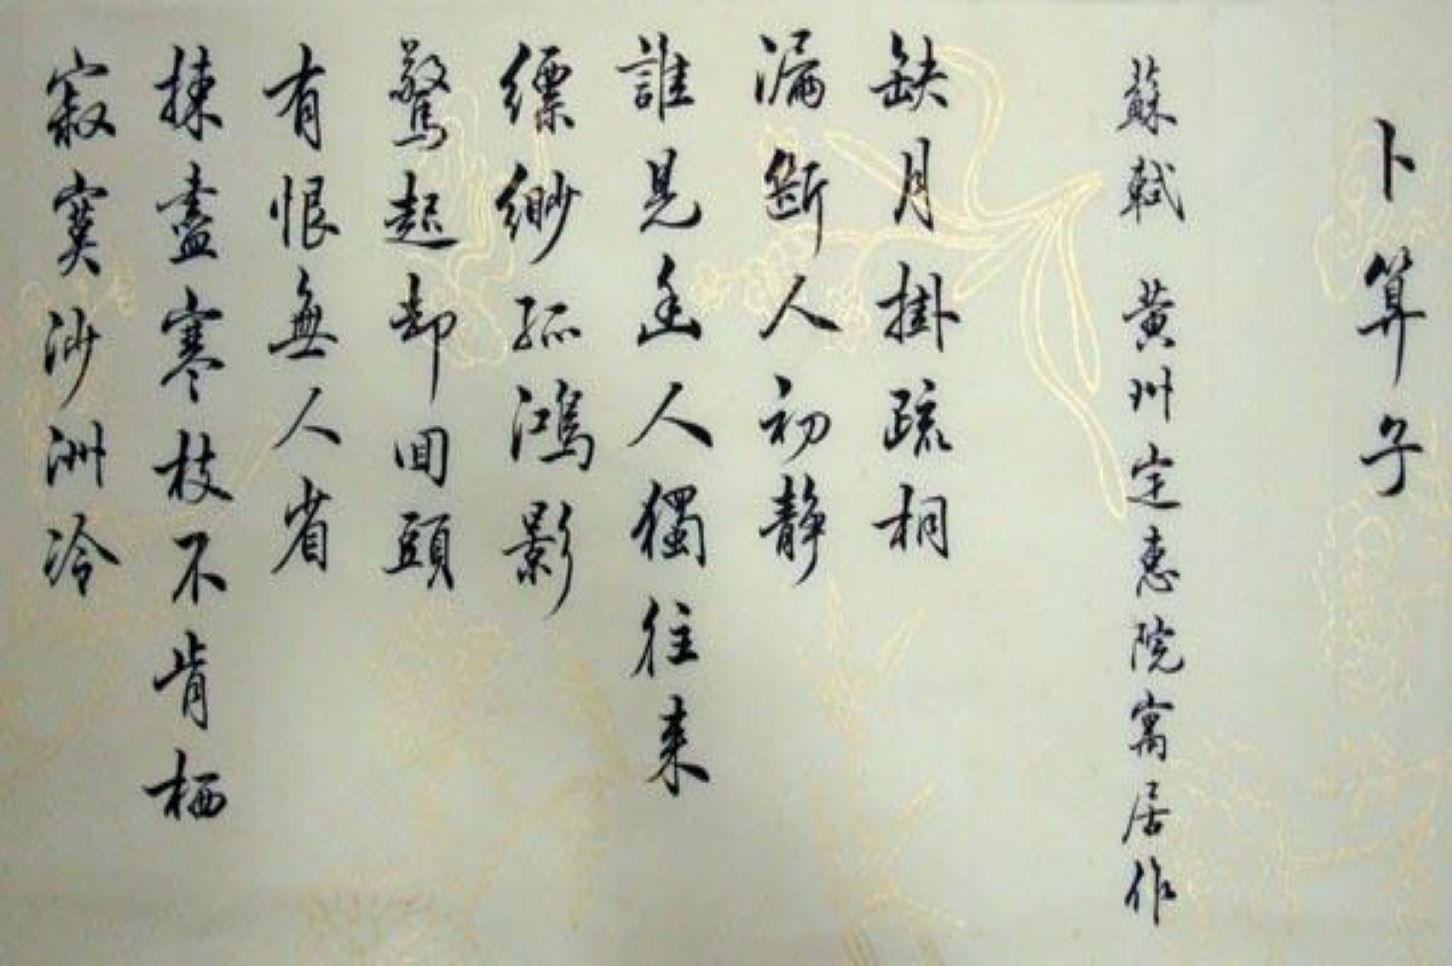 卜算子
蘇軾 黄州定惠院寓居作
缺月掛疏桐
漏斷人初静
誰見幽人獨往来
缥缈孤鴻影
驚起却回頭
有恨無人省
揀盡寒枝不肯栖
寂寞沙洲冷